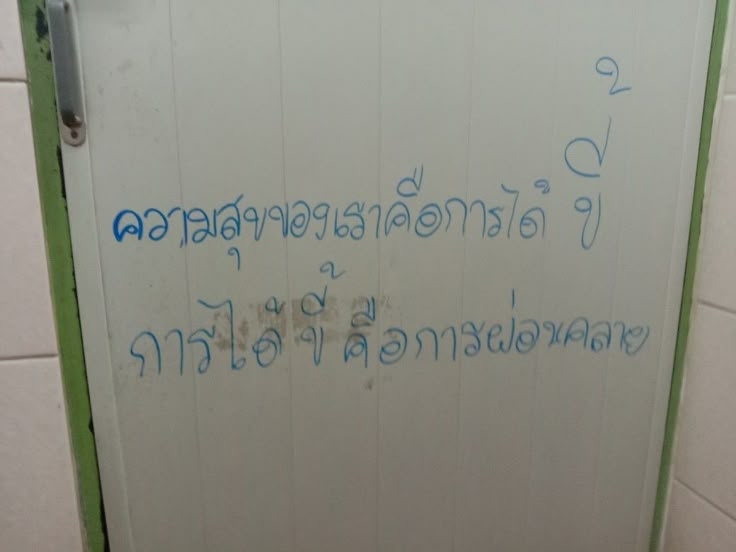 ความสุขของเราคือการได้ ขี้
การได้ ขี้ คือการผ่อนคลาย